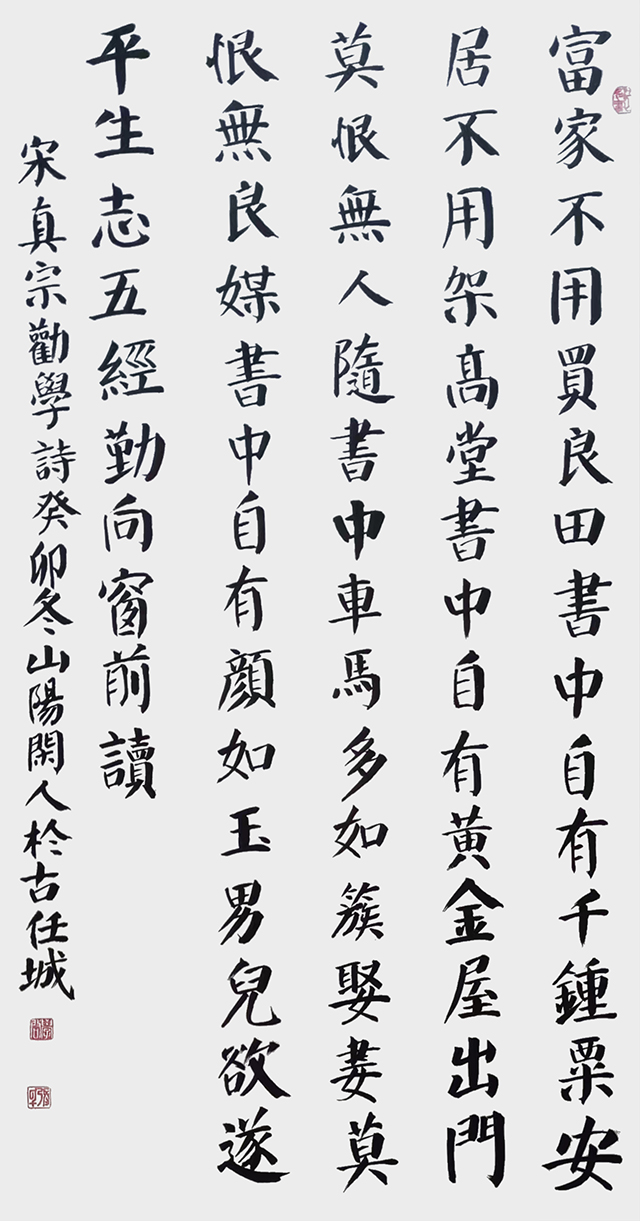 富家不用買良田書中自有千鍾粟安
居不用架高堂書中自有黄金屋出門
莫恨無人隨書中車馬多如簇娶妻莫
恨無良媒書中自有顔如玉男兒欲遂
平生志五經勤向窗前讀
宋真宗勸學詩癸卯冬山陽閑人於古任城